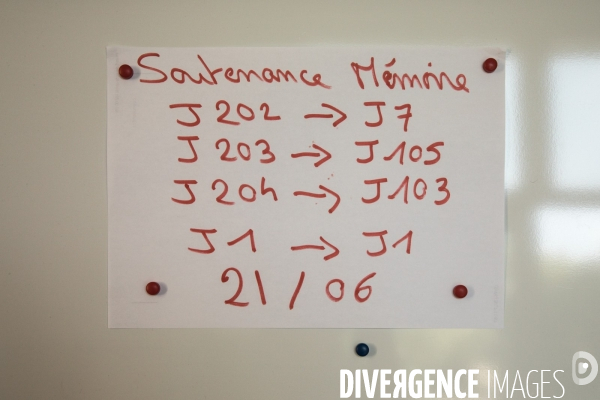 Soutenance Mémoire
J 202 → J 7
J 203 → J 105
J 204 → J 103
J 1 → J 1
21 / 06
DIVERGENCE IMAGES